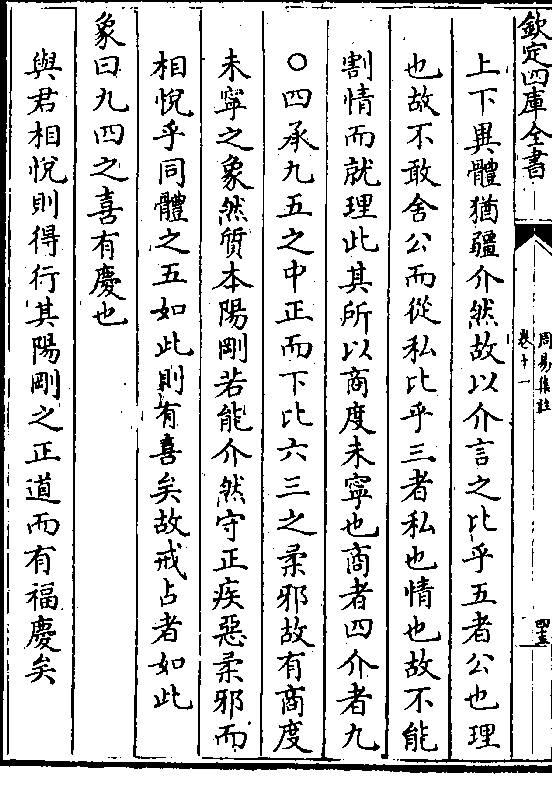 欽定四庫全書
周易集註
卷十一
四十五
上下異體猶疆介然故以介言之比乎五者公也理
也故不敢舍公而從私比乎三者私也情也故不能
割情而就理此其所以商度未寧也商者四介者九
○四承九五之中正而下比六三之柔邪故有商度
未寧之象然質本陽剛若能介然守正疾惡柔邪而
相悅乎同體之五如此則有喜矣故戒占者如此
象曰九四之喜有慶也
與君相悅則得行其陽剛之正道而有福慶矣